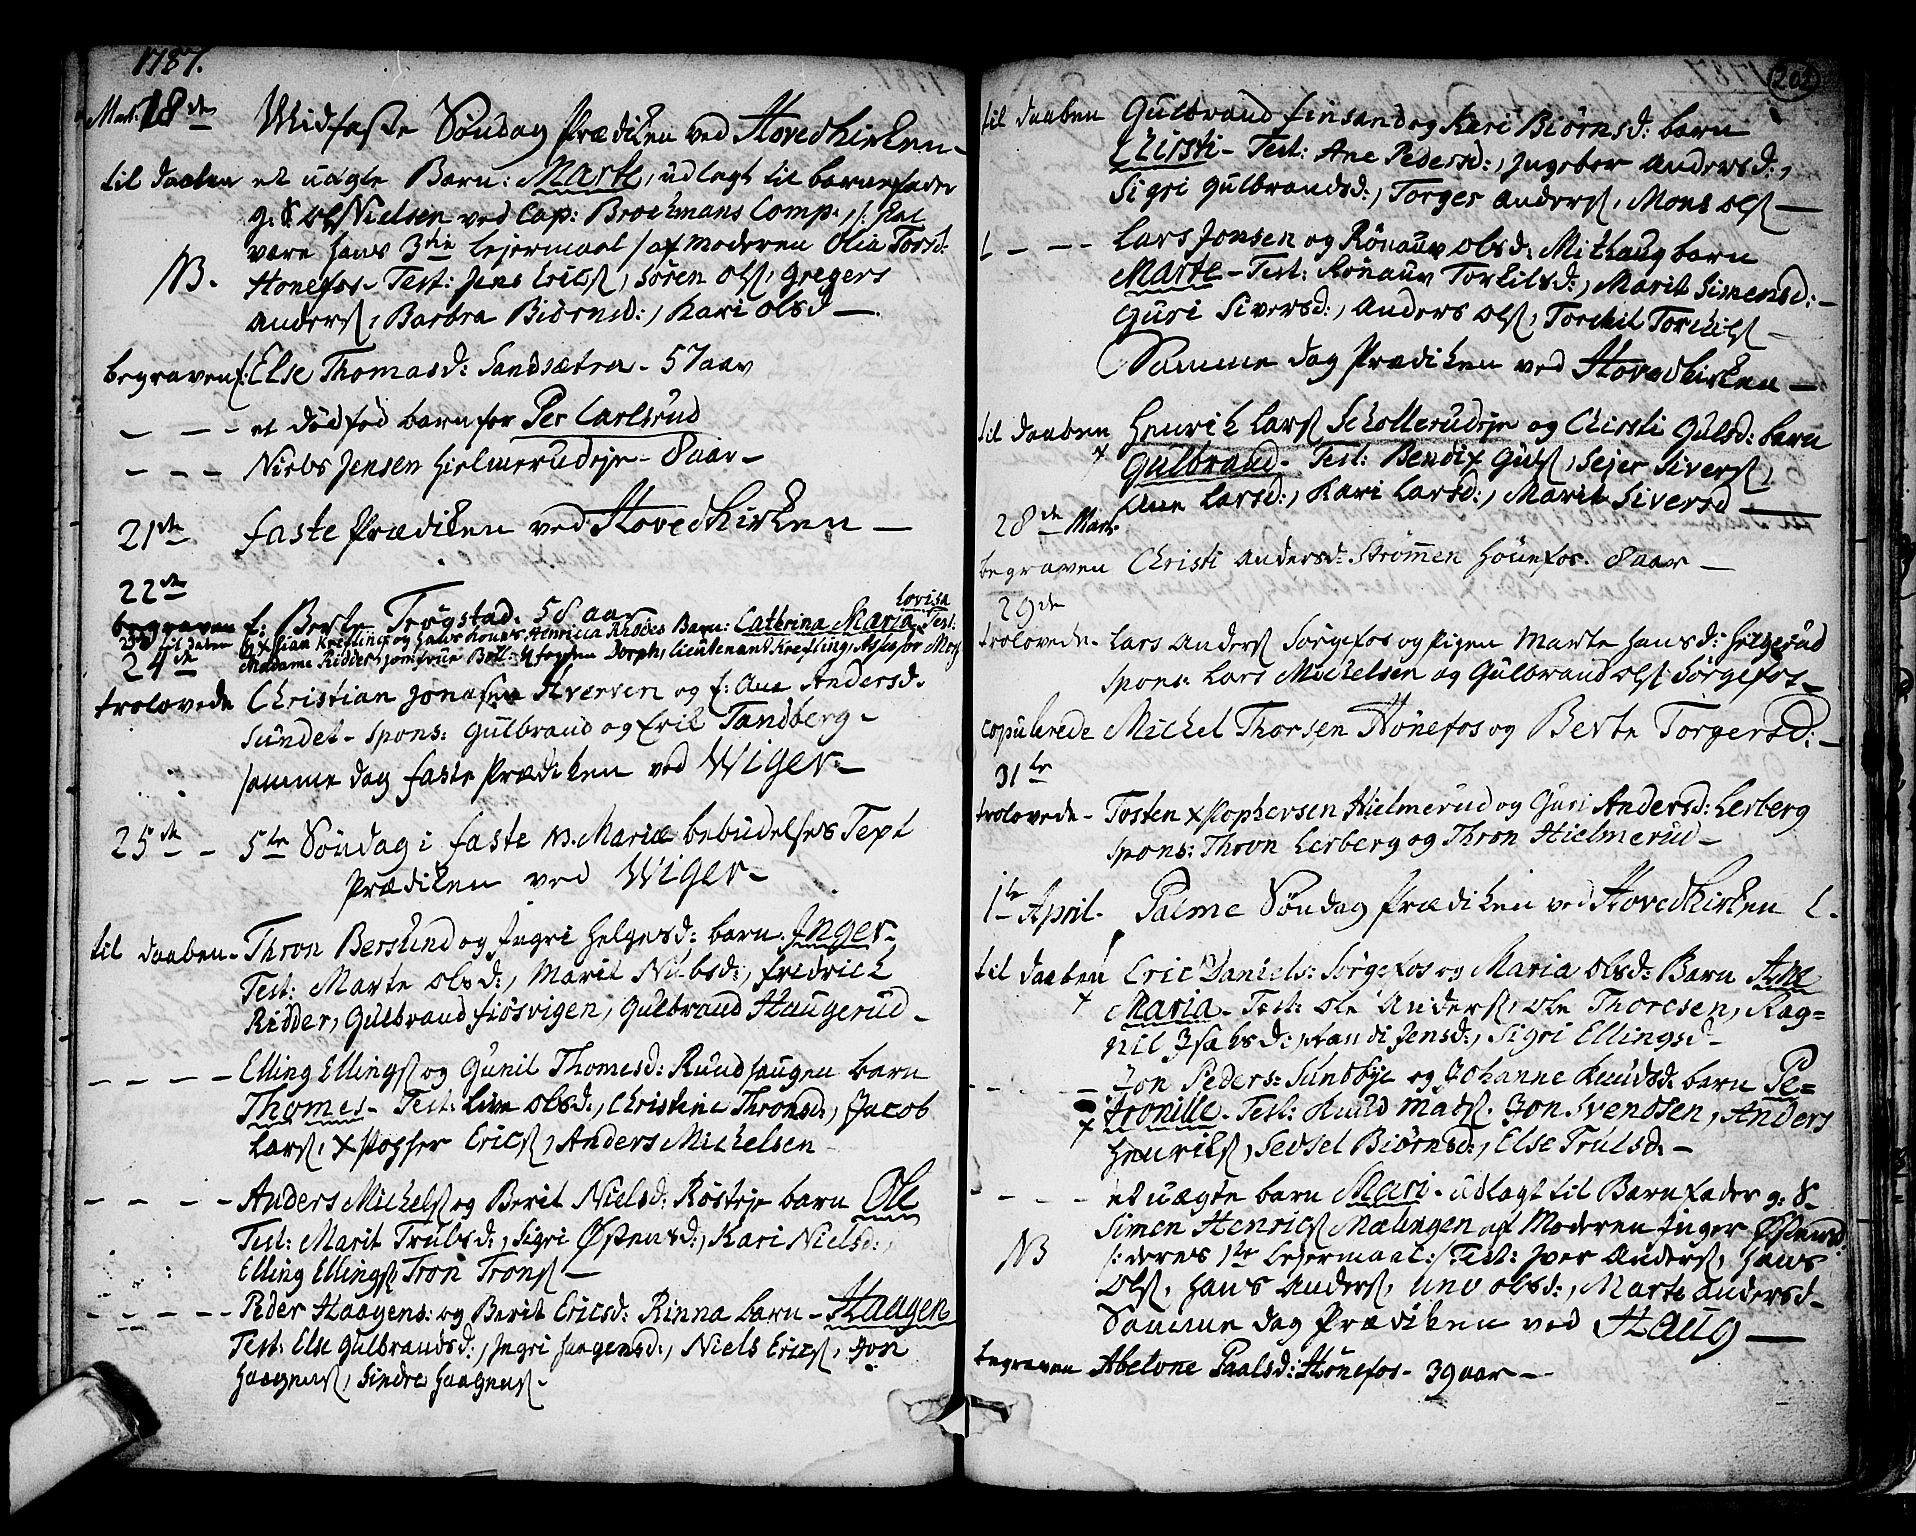 1787.
Mart: 18de Midfaste Søndag Prædiken ved Hovedkirken –
til daaben et uægte Barn: Marte, udlagt til barnefader
g: S Ols Nielsen ved Cap: Brochmans Comp: /: skal
være hans 3die Lejermaal / af moderen Olia Torsd:
NB. Honefos – Test: Jens Erics, Søren Ols, Gregers
Anders, Barbra Biørnsd:, Kari Olsd –.
begraven f: Else Thomasd: Sandsætra – 57 aar
– – – et dødfød barn for Per Carlsrud
– – – Niels Jensen Hielmerudeje – 8 aar –
21de faste Prædiken ved Hovedkirken –
22de
begraven f: Berte Trøgstad. 58 aar
Lovisa
23de til daben Christian Krefting og Hans Kones Henrica Rhodes Barn: Cathrina Maria Test:
24de Madame Ridder, jomfrue Fogden Dorph, Lieutenant Krefting,
trolovede Christian Jonasen Iversen og f: Ane Andersd.
Sundet – Spons: Gulbrand og Eric Tandberg –
samme dag faste Prædiken ved Wiger –
25de – 5te Søndag i faste NB. Mariæ bebudelses Text
Prædiken ved Wiger –
til daaben – Thron Berslund og Ingri Helgesd: barn: Inger –
Test: Marte Olsd:, Marit Nilsd:, fredrich
Ridder, Gulbrand fiøsvigen, Gulbrand Haugerud –
– – – – Elling Ellings og Gunil Thomesd: Ruudhaugen barn
Thomes – Test: Live Olsd:, Christine Thronsd:, Jacob
Lars, Xstopher Erics, Anders Michelsen –
– – – – Anders Michels og Berit Nielsd: Røsteje barn Ole
Test: Marit Trulsd:, Sigri Østensd:, Kari Nielsd:,
Elling Ellings, Tron Trons –
– – – – Peder Haagens: og Berit Ericsd: Rinna barn – Haagen
Test: Else Gulbrandsd:, Ingri Haagensd:, Niels Erics, Jon
Haagens, Sindre Haagens –
202
til daaben Gulbrand finsand og Kari Biørnsd: barn
Chirsti – Test: Ane Pedersd:, Ingebor Andersd:,
Sigri Gulbrandsd:, Torger Anders, Mons Ols –
– – – Lars Jonsen og Rønauv Olsd: Mithaug barn
Marte – Test: Rønauv Torkilsd:, Marit Simensd: –
Guri Siversd:, Anders Ols, Torchil Torchils –
Samme dag Prædiken ved Hovedkirken –
til daaben Henrich Lars Schollerudeje og Chirsti Gulsd: barn
x Gulbrand – Test: Bendix Guls, Sejer Sivers,
Ane Larsd:, Kari Larsd:, Marit Siversd –
28de Mart:
begraven Christi Andersd: Strømmen Hønefos. 8 aar –
29de
trolovede – Lars Anders Sørgefos og Pigen Marte Hansd:
Spons: Lars Michelsen og Gulbrand Ols Sørgefos –
copulerede Michel Thorsen Hønefos og Berte Torgersd: –
31te
trolovede – Tosten Xstophersen Hielmerud og Guri Andersd: Lerberg
Spons: Thron Lerberg og Thron Hielmerud –
1te April – Palme Søndag Prædiken ved Hovedkirken
til daaben Eric Daniels: Sørgefos og Maria Olsd: Barn Ane
x Maria – Test: Ole Anders, Ole Thoresen, Rag=
nil Isaksd:, Randi Jensd:, Sigri Ellingsd –
– – – – Jon Peders: Sundbye og Johanne Knudsd: barn Pe=
x tronille – Test: Knud Mads, Jon Svendsen, Anders
Henriks, Sedsel Biørnsd:, Else Trulsd: –
– – – – et uægte barn Mari – udlagt til Barnfader g: S
Simen Henrics Mælingen af Moderen Inger Østensd:
NB /: deres 1te Lejermaal :/ Test: Iver Anders, Hans
Ols, Hans Anders, Unv Olsd:, Marte Andersd –
Samme dag Prædiken ved Haug –
begraven Abelone Paalsd: Hønefos – 39 aar –